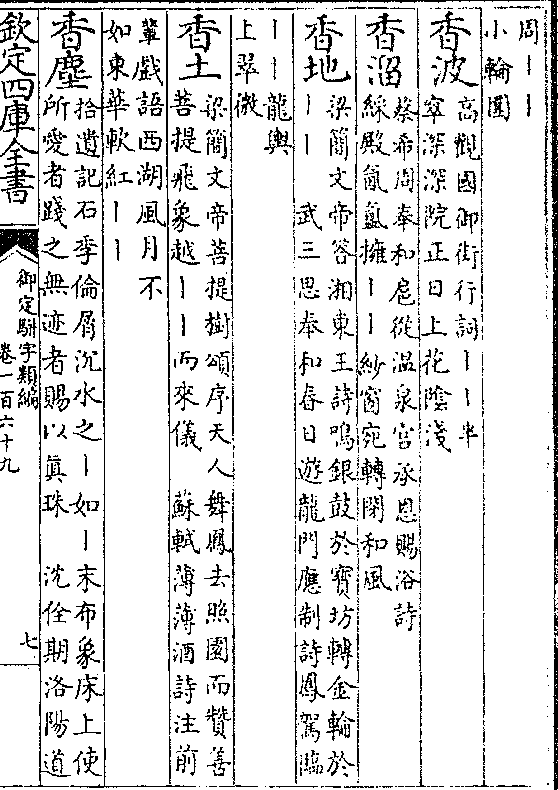 周丨丨
小輪圍
香波高觀國御街行詞丨丨半
窣深深院正日上花陰淺
香溜蔡希周奉和扈從温泉宫承恩賜浴詩
綵殿氤氳擁丨丨紗窗宛轉閉和風
香地梁簡文帝答湘東王詩鳴銀鼓於寶坊轉金輪於
丨丨　武三思奉和春日遊龍門應制詩鳳駕臨
丨丨龍輿
上翠微
香土梁簡文帝菩提樹頌序天人舞鳳去照園而贊善
菩提飛象越丨丨而來儀　蘇軾薄薄酒詩注前
輩戲語西湖風月不
如東華軟紅丨丨
香塵拾遺記石季倫屑沉水之丨如丨末布象床上使
所愛者踐之無迹者賜以真珠　沈佺期洛陽道
欽定四庫全書
御定駢字類編
卷一百六十九
七